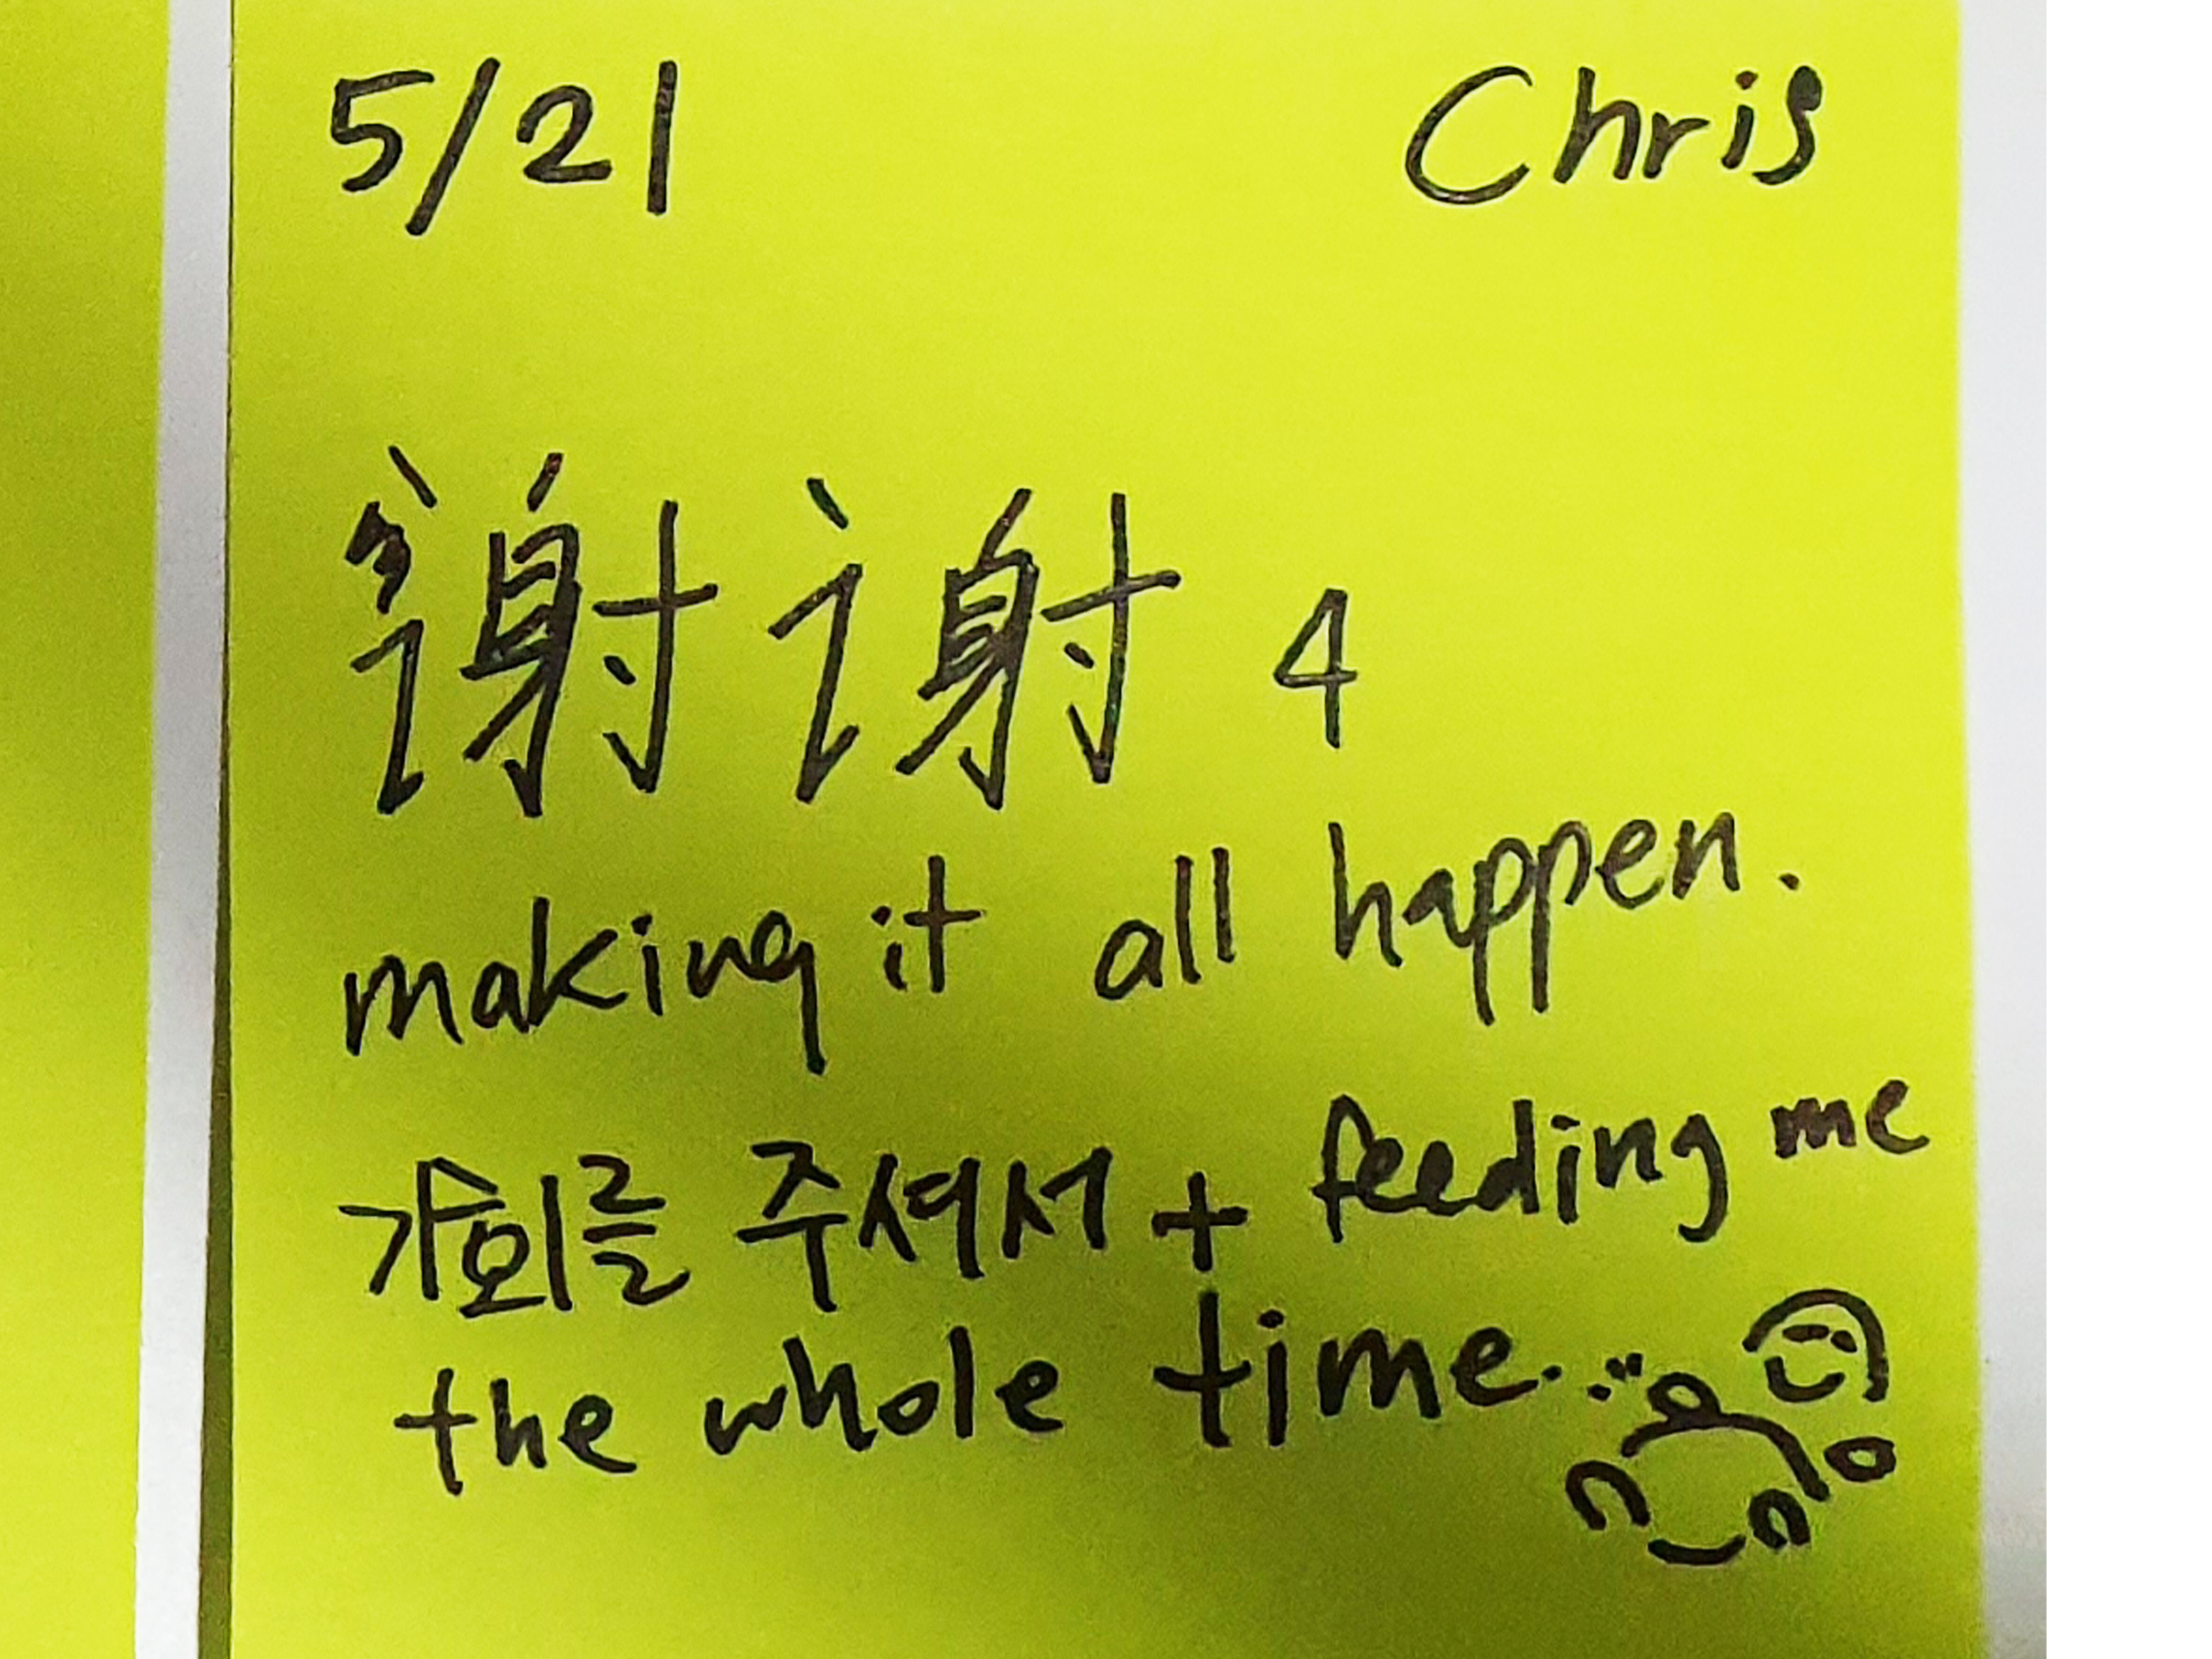 5/21 Chris
谢谢 4
making it all happen.
가회를 주셔서 + feeding me
the whole time.